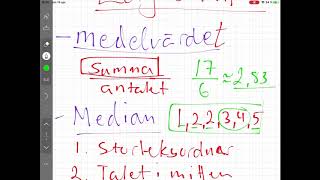 - medelvärdet
Summa/antalet 17/6 ≈ 2,83
- Median 1,2,2,3,4,5
1. Storleksordnar
2. Talet i mitten